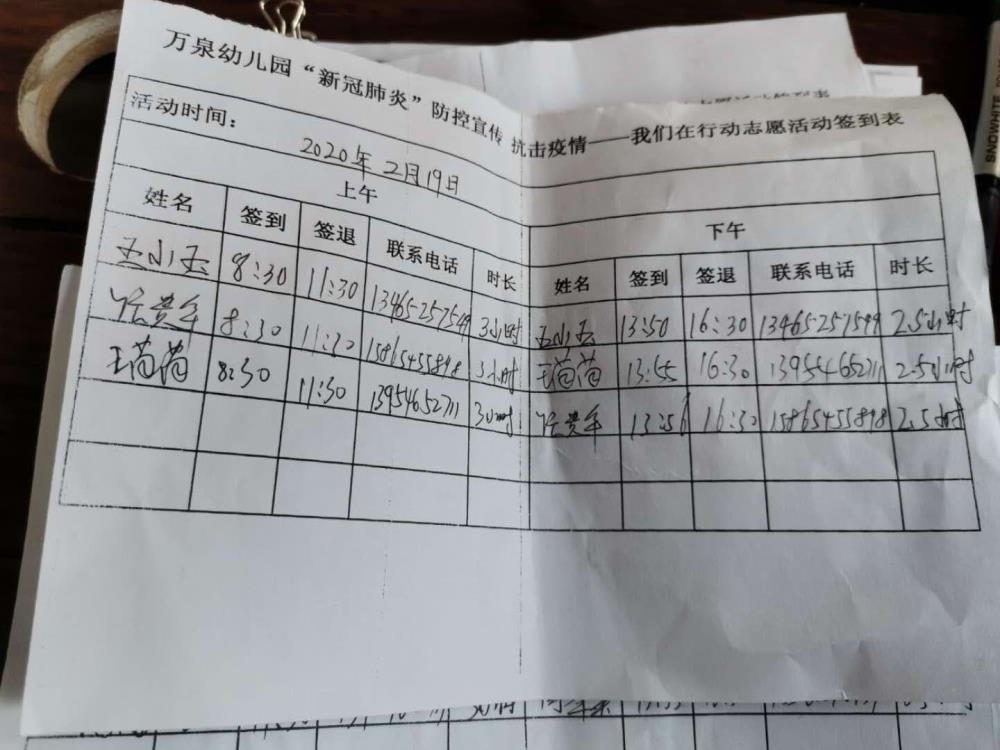 万泉幼儿园“新冠肺炎”防控宣传 抗击疫情——我们在行动志愿活动签到表
活动时间：
2020年2月19日
上午 下午
姓名 签到 签退 联系电话 时长 姓名 签到 签退 联系电话 时长
王小玉 8:30 11:30 13465257599 3小时 王小玉 13:50 16:30 13465257599 2.5小时
张贵军 8:30 11:30 15865455898 3小时 王苗苗 13:55 16:30 13954652711 2.5小时
王苗苗 8:30 11:30 13954652711 3小时 张贵军 13:56 16:30 15865455898 2.5小时
SNOWHITE